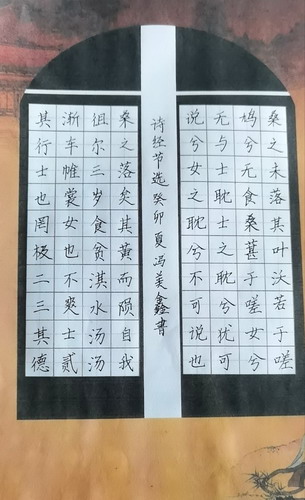 桑之未落其叶沃若于嗟
鸠兮无食桑葚于嗟女兮
无与士耽士之耽兮犹可
说兮女之耽兮不可说也
诗经节选癸卯夏冯美鑫书
桑之落矣其黄而陨自我
徂尔三岁食贫淇水汤汤
渐车帷裳女也不爽士贰
其行士也罔极二三其德